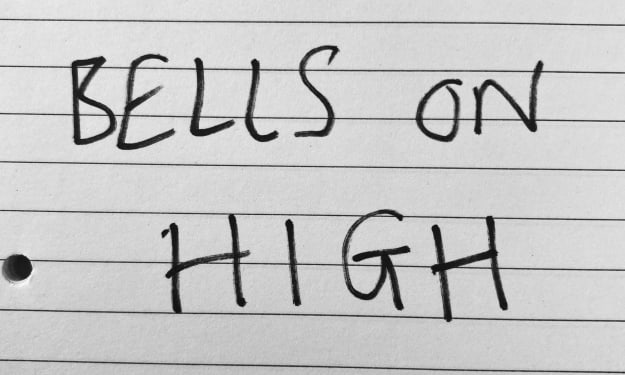 BELLS ON
HIGH